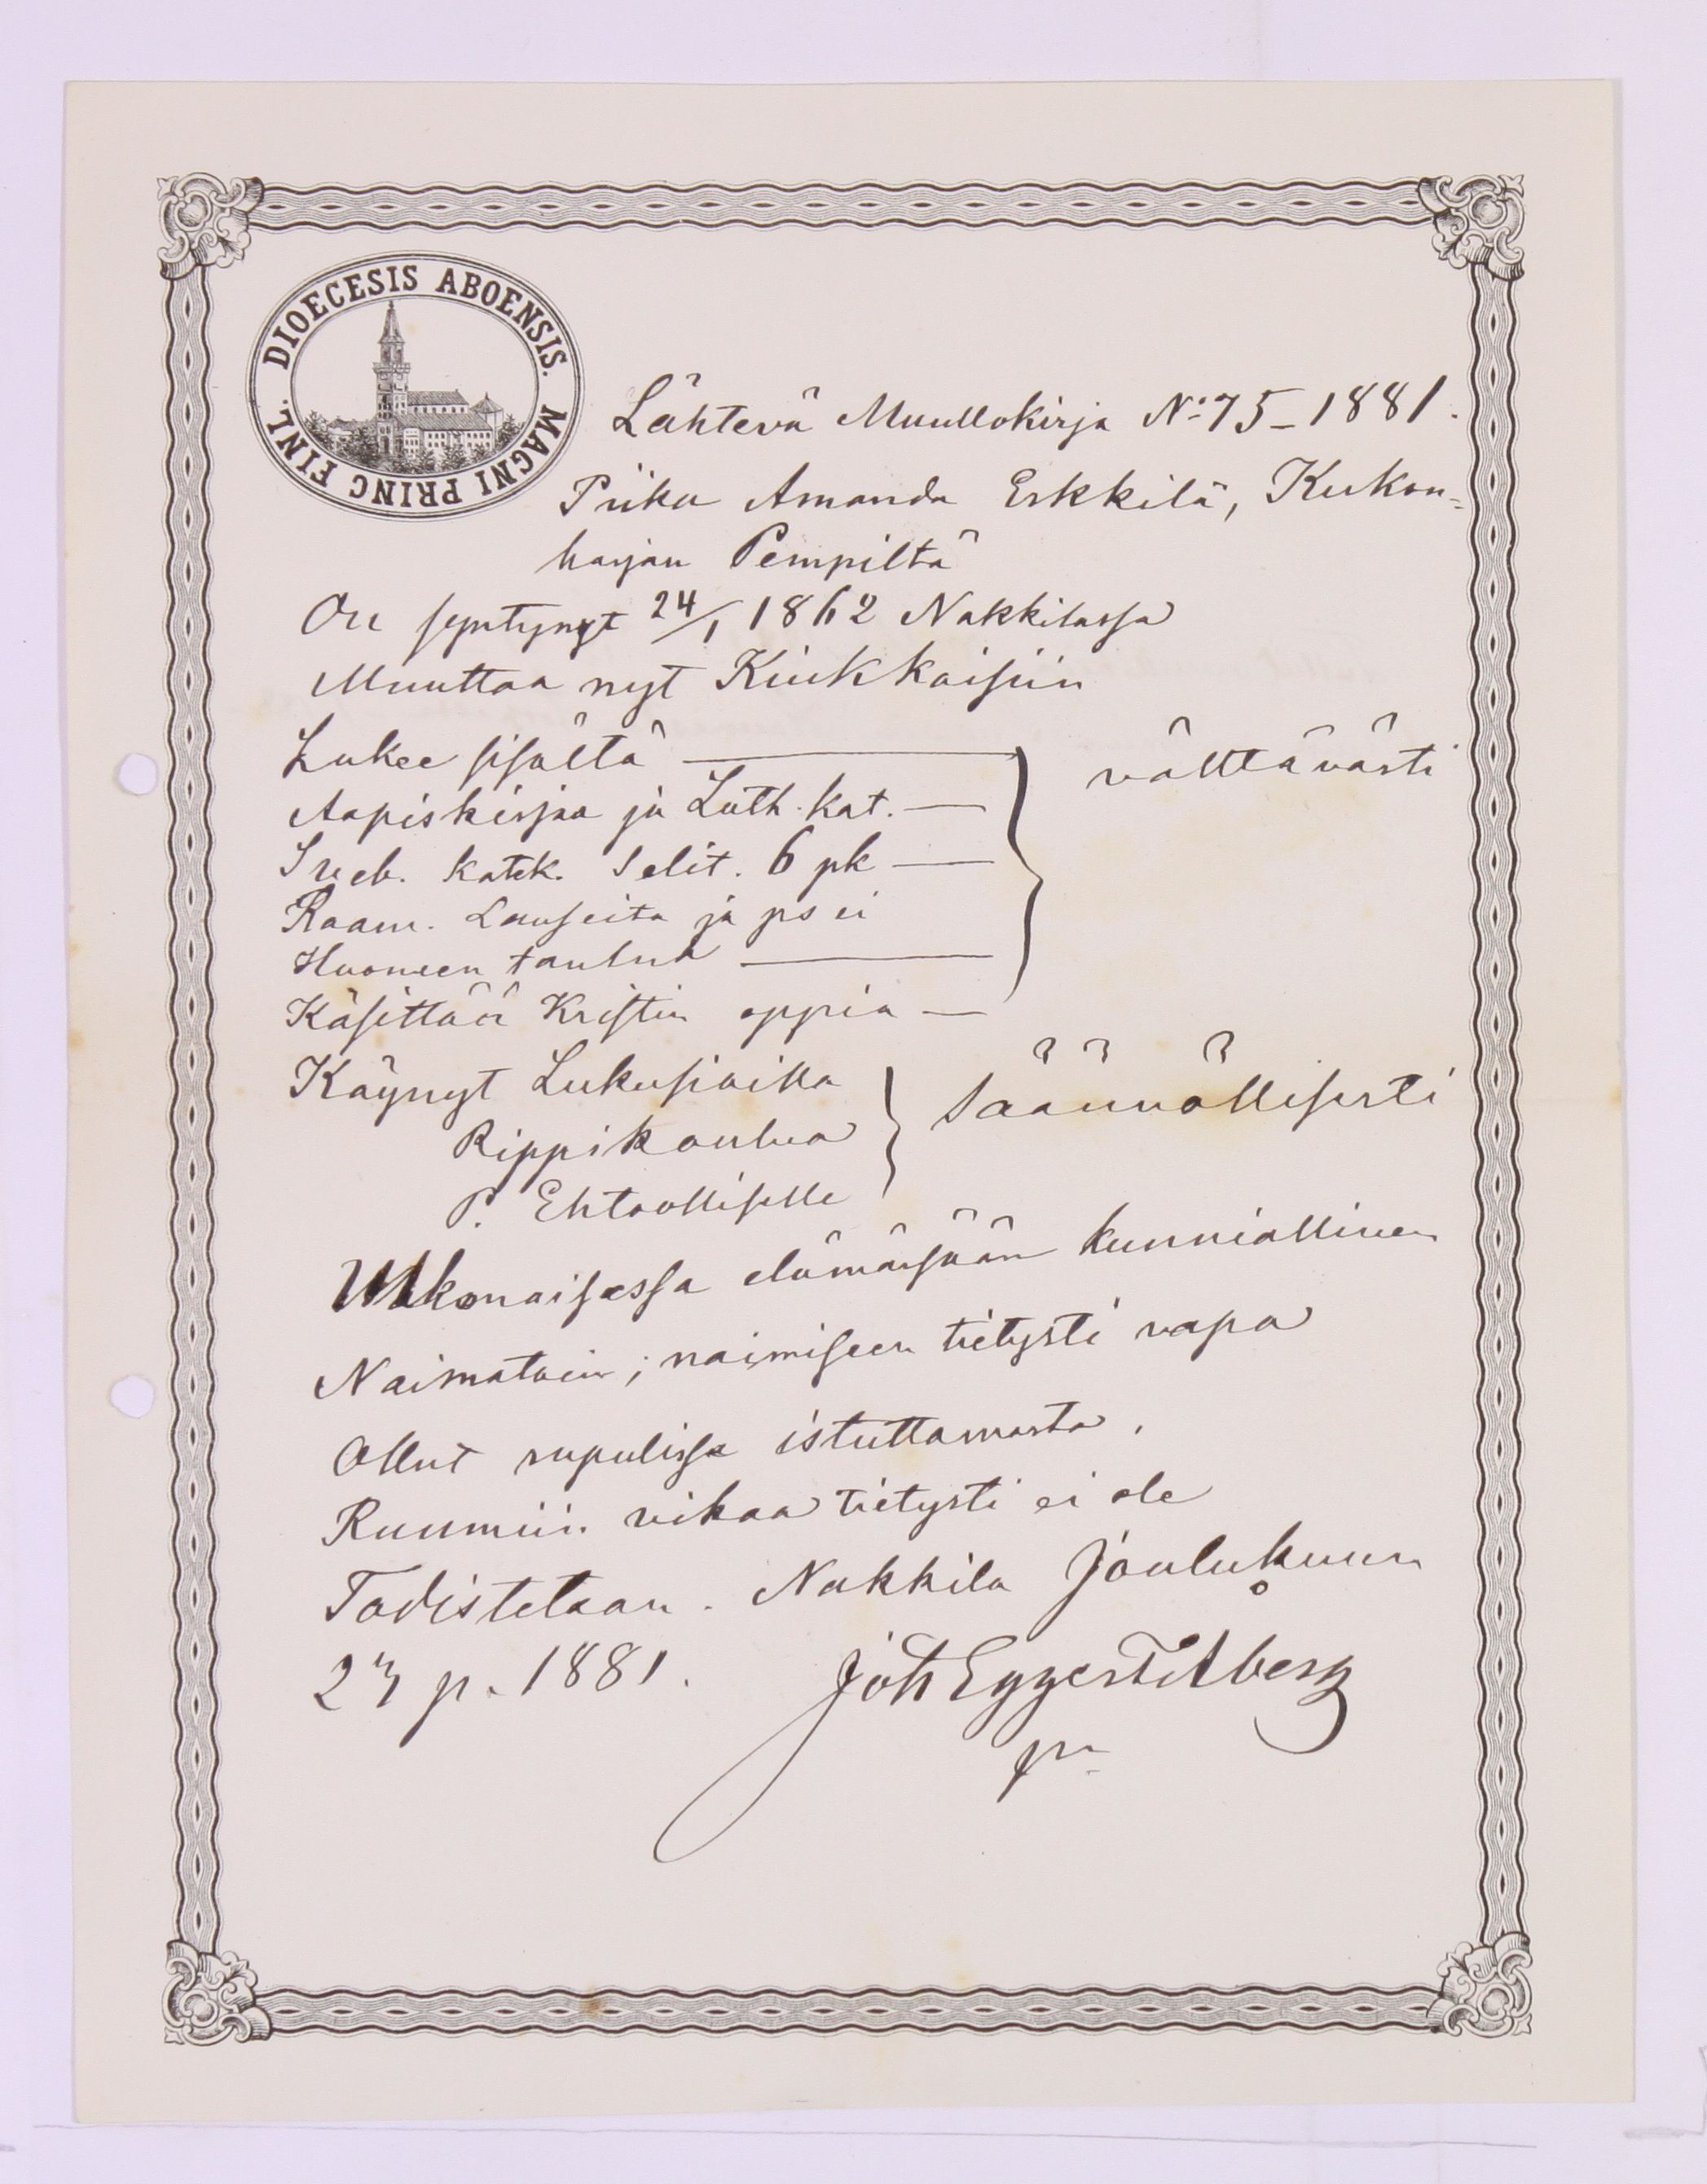 DIOECESIS ABOENSIS. MAGNI PRINC FINL.
Lähtevä Muuttokirja No 75 – 1881.
Piika Amanda Erkkilä, Kukon-
harjan Pempiltä
On syntynyt 24/1 1862 Nakkilassa
Muuttaa nyt Kiukkaisiin
Lukee sisältä — välttävästi
Aapiskirjaa ja Luth. Kat. —
Sveb. katek. Selit. 6 pk —
Raam. Lauseita ja ps ei
Huoneen taulua —
Käsittää Kristin oppia —
Käynyt Lukusioilla
Rippikoulua } säännöllisesti
P. Ehtoollisella
Ulkonaisessa elämässään kunniallinen
Naimatoin; naimiseen tietysti vapa
Ollut rupulissa istuttamasta.
Ruumiin vikaa tietysti ei ole
Todistetaan. Nakkila Joulukuun
27 p. 1881. Joh Eggert Åberg